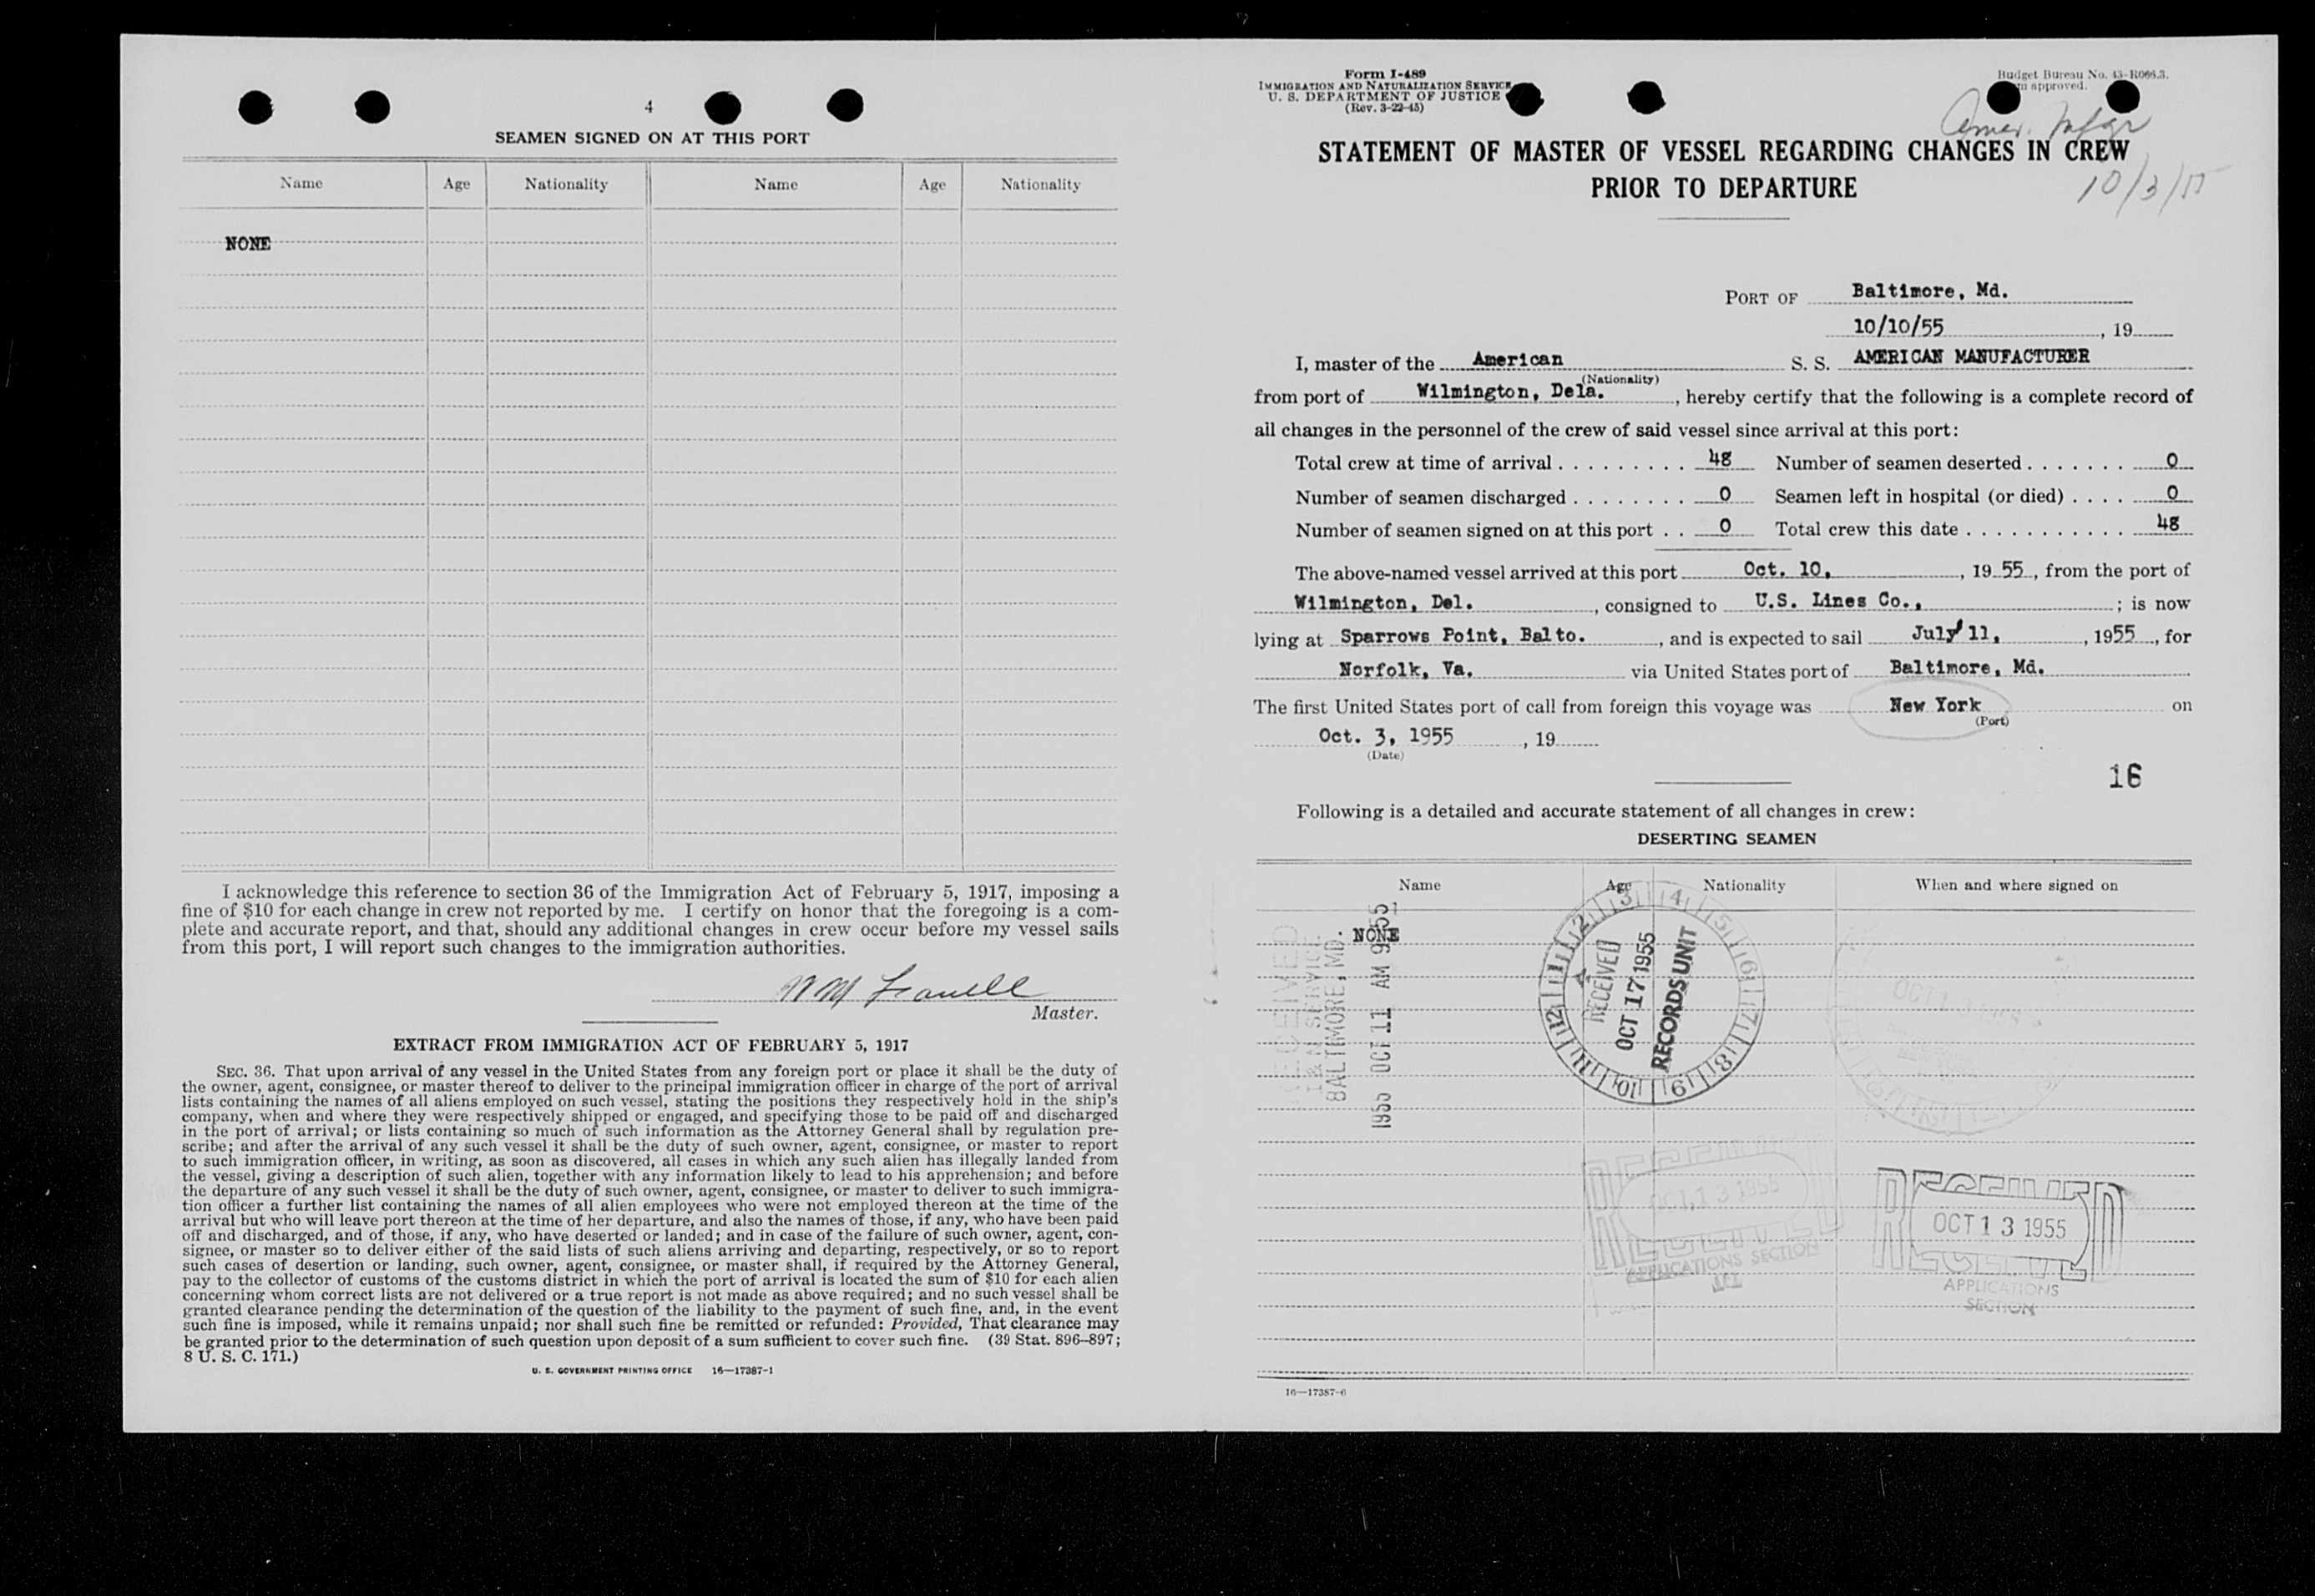 4
SEAMEN SIGNED ON AT THIS PORT
Name Age Nationality Name Age Nationality
NONE
I acknowledge this reference to section 36 of the Immigration Act of February 5, 1917, imposing a
fine of $10 for each change in crew not reported by me. I certify on honor that the foregoing is a com-
plete and accurate report, and that, should any additional changes in crew occur before my vessel sails
from this port, I will report such changes to the immigration authorities.
Master.
EXTRACT FROM IMMIGRATION ACT OF FEBRUARY 5, 1917
SEC. 36. That upon arrival of any vessel in the United States from any foreign port or place it shall be the duty of
the owner, agent, consignee, or master thereof to deliver to the principal immigration officer in charge of the port of arrival
lists containing the names of all aliens employed on such vessel, stating the positions they respectively hold in the ship's
company, when and where they were respectively shipped or engaged, and specifying those to be paid off and discharged
in the port of arrival; or lists containing so much of such information as the Attorney General shall by regulation pre-
scribe; and after the arrival of any such vessel it shall be the duty of such owner, agent, consignee, or master to report
to such immigration officer, in writing, as soon as discovered, all cases in which any such alien has illegally landed from
the vessel, giving a description of such alien, together with any information likely to lead to his apprehension; and before
the departure of any such vessel it shall be the duty of such owner, agent, consignee, or master to deliver to such immigra-
tion officer a further list containing the names of all alien employees who were not employed thereon at the time of the
arrival but who will leave port thereon at the time of her departure, and also the names of those, if any, who have been paid
off and discharged, and of those, if any, who have deserted or landed; and in case of the failure of such owner, agent, con-
signee, or master so to deliver either of the said lists of such aliens arriving and departing, respectively, or so to report
such cases of desertion or landing, such owner, agent, consignee, or master shall, if required by the Attorney General,
pay to the collector of customs of the customs district in which the port of arrival is located the sum of $10 for each alien
concerning whom correct lists are not delivered or a true report is not made as above required; and no such vessel shall be
granted clearance pending the determination of the question of the liability to the payment of such fine, and, in the event
such fine is imposed, while it remains unpaid; nor shall such fine be remitted or refunded: Provided, That clearance may
be granted prior to the determination of such question upon deposit of a sum sufficient to cover such fine. (39 Stat. 896–897;
8 U. S. C. 171.)
U. S. GOVERNMENT PRINTING OFFICE 16—17387-1
Form I-489
IMMIGRATION AND NATURALIZATION SERVICE
U. S. DEPARTMENT OF JUSTICE
(Rev. 3-22-45)
Budget Bureau No. 43-R066.3.
approved.
Amer. Mfgr
10/3/55
STATEMENT OF MASTER OF VESSEL REGARDING CHANGES IN CREW
PRIOR TO DEPARTURE
PORT OF Baltimore, Md.
10/10/55, 19
I, master of the American S. S. AMERICAN MANUFACTURER
(Nationality)
from port of Wilmington, Dela., hereby certify that the following is a complete record of
all changes in the personnel of the crew of said vessel since arrival at this port:
Total crew at time of arrival 48 Number of seamen deserted 0
Number of seamen discharged 0 Seamen left in hospital (or died) 0
Number of seamen signed on at this port 0 Total crew this date 48
The above-named vessel arrived at this port Oct. 10, , 19 55, from the port of
Wilmington, Del., consigned to U.S. Lines Co., ; is now
lying at Sparrows Point, Balto., and is expected to sail July 11, , 1955, for
Norfolk, Va. via United States port of Baltimore, Md.
The first United States port of call from foreign this voyage was New York on
(Port)
Oct. 3, 1955, 19
(Date)
16
Following is a detailed and accurate statement of all changes in crew:
DESERTING SEAMEN
Name Age Nationality When and where signed on
NONE
RECEIVED
I & N SERVICE
BALTIMORE, MD.
1955 OCT 11 AM 9 55
RECEIVED
OCT 17 1955
RECORDS UNIT
1 2 3 4 5 6 7 8 9 10 11 12
OCT 13
RECEIVED
OCT 13 1955
APPLICATIONS SECTION
RECEIVED
OCT 13 1955
APPLICATIONS
SECTION
16—17387-6